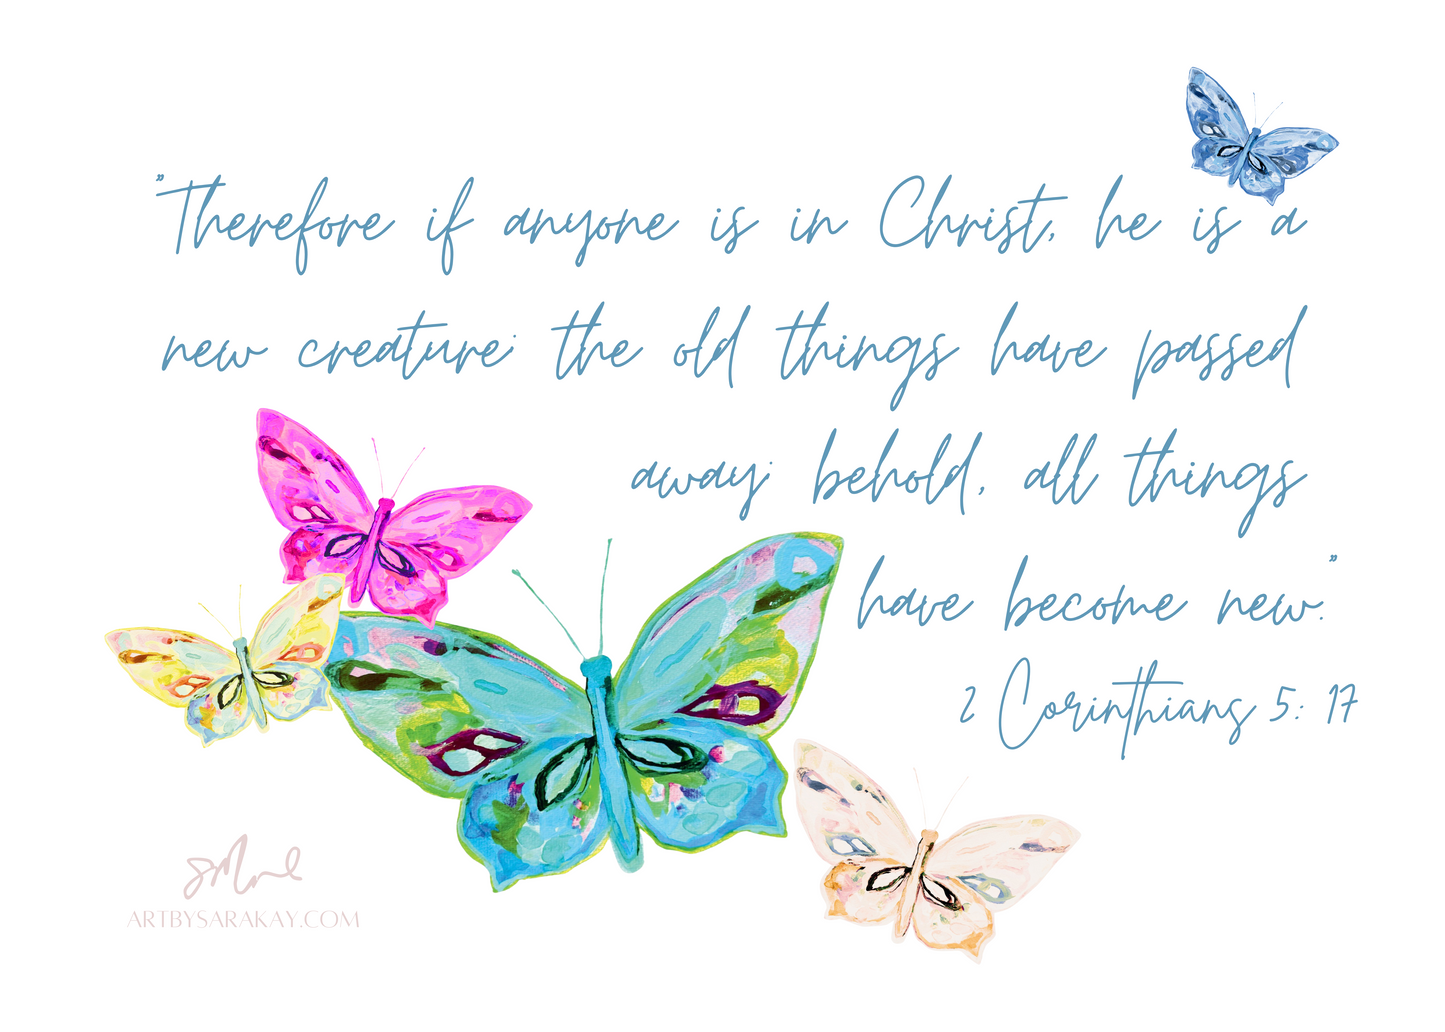 "Therefore if anyone is in Christ, he is a
new creature; the old things have passed
away; behold, all things
have become new."
2 Corinthians 5: 17
ARTBYSARAKAY.COM